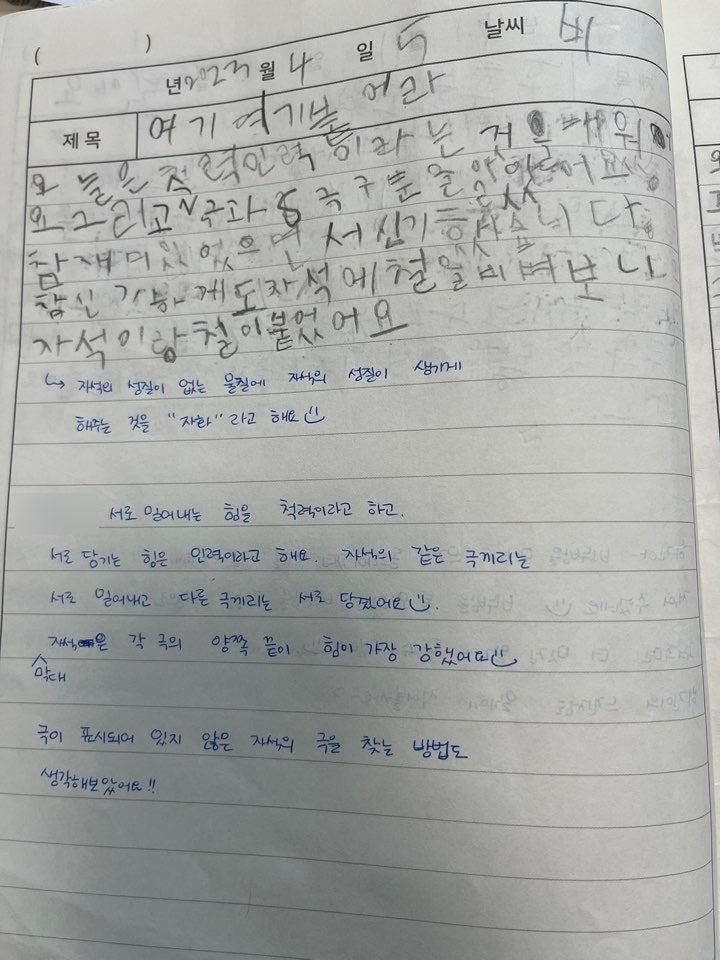 ( )
년 2023 월 4 일 5 날씨 비
제목 여기여기붙어라
오늘은 척력인력이라는 것을 배워
요 그리고 N극과 S극 구분을 알았어요
참 재미있었으면서 신기했습니다
참 신기하게도 자석에 철을 비벼보니
자석이랑 철이 붙었어요
↳ 자석의 성질이 없는 물질에 자석의 성질이 생기게
해주는 것을 "자화"라고 해요
서로 밀어내는 힘을 척력이라고 하고.
서로 당기는 힘은 인력이라고 해요. 자석의 같은 극끼리는
서로 밀어내고 다른 극끼리는 서로 당겼어요.
자석은 각 극의 양쪽 끝이 힘이 가장 강했어요
막대
극이 표시되어 있지 않은 자석의 극을 찾는 방법도
생각해보았어요!!